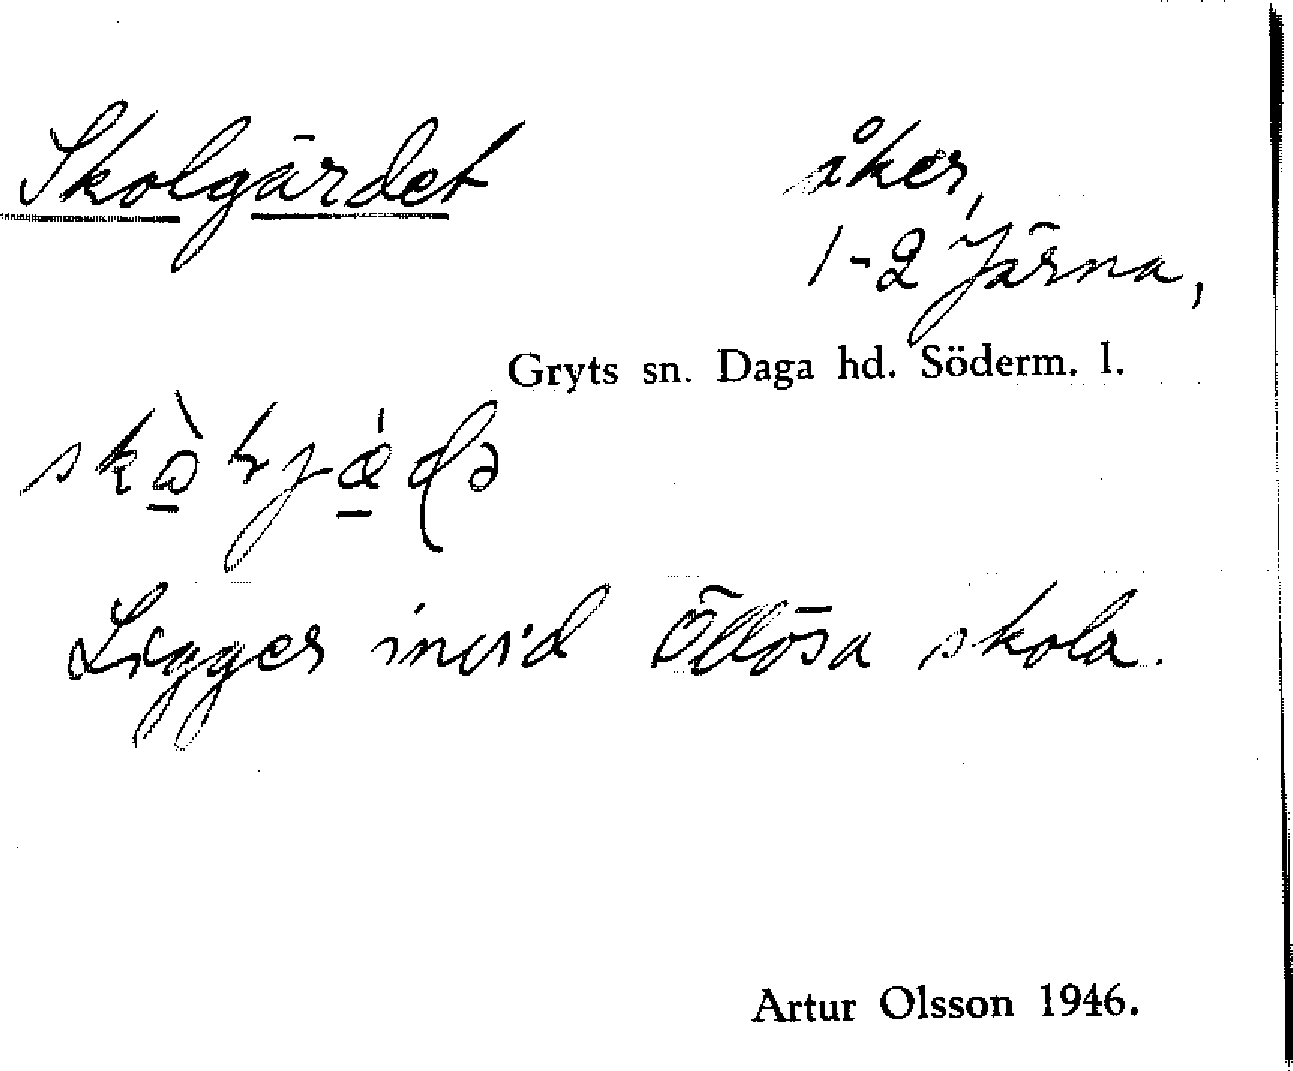 Skolgärdet
åker,
1-2 Järna,
Gryts sn. Daga hd. Söderm. l.
Ligger invid Öllösa skola.
Artur Olsson 1946.